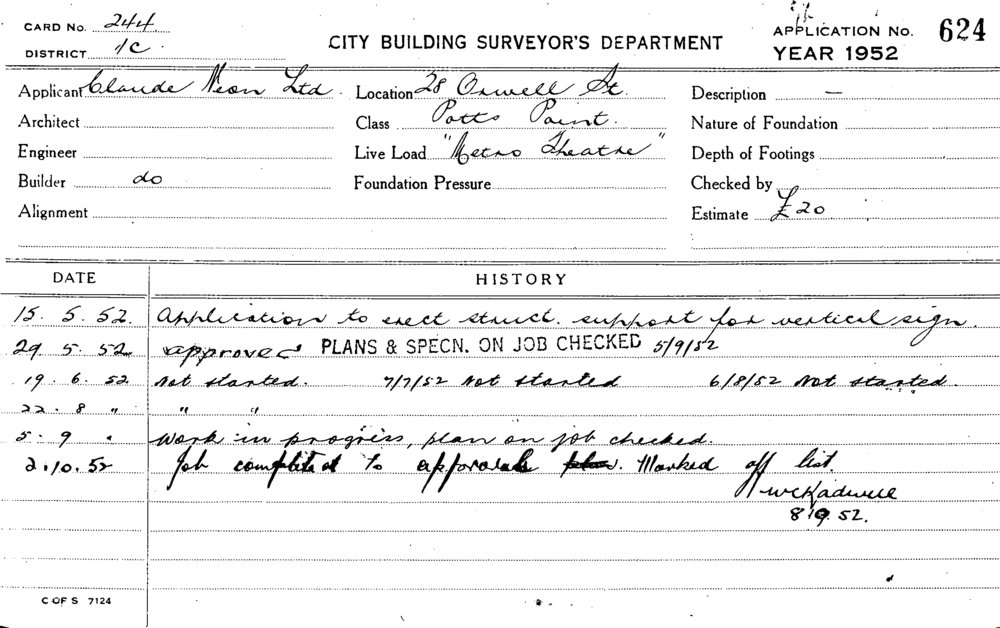 CARD No. 244
DISTRICT 1C
CITY BUILDING SURVEYOR'S DEPARTMENT
APPLICATION No. 624
YEAR 1952
Applicant Claude Neon Ltd. Location 28 Orwell St. Description —
Architect Class Potts Point. Nature of Foundation
Engineer Live Load "Metro Theatre" Depth of Footings
Builder do Foundation Pressure Checked by
Alignment Estimate £20
DATE HISTORY
15. 5. 52. Application to erect struct. support for vertical sign.
29. 5. 52 approved PLANS & SPECN. ON JOB CHECKED 5/9/52
19. 6. 52 not started. 7/7/52 not started 6/8/52 not started.
22. 8 " " "
5. 9 " work in progress, plan on job checked.
2.10.52 Job completed to approval. Marked off list.
W C Kadwell
52.
C OF S 7124